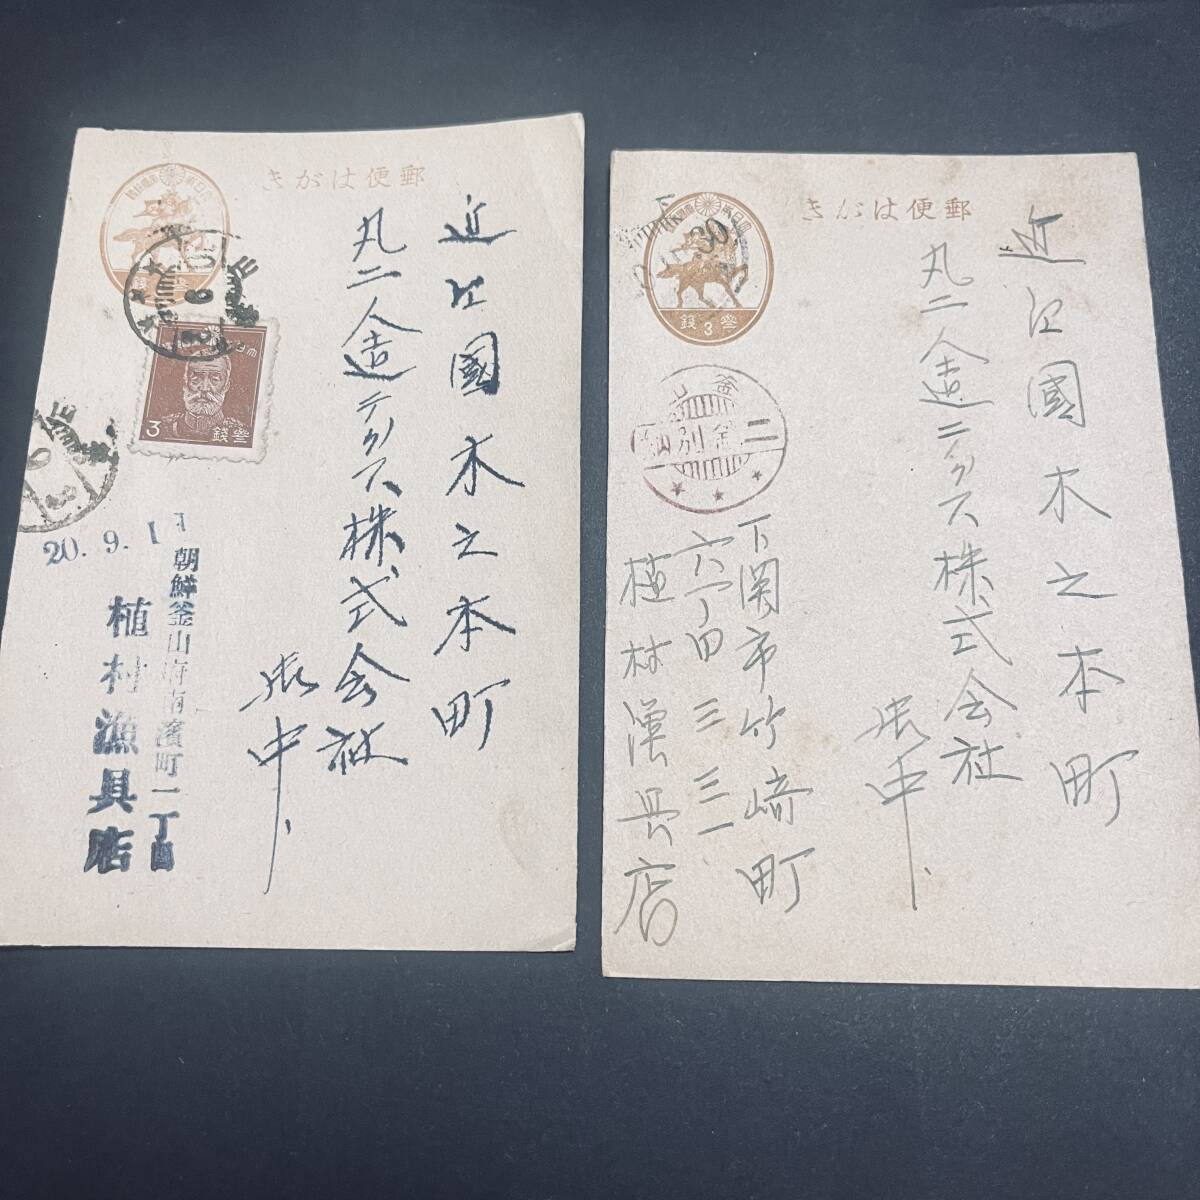 郵便はがき
大日本帝國郵便
3
参銭
近江國木之本町
丸二人造テグス株式会社
御中
20.9.1
朝鮮釜山府南濱町一丁目
植村漁具店
郵便はがき
30
3
参銭
釜山
二
釜
別納
近江國木之本町
丸二人造テグス株式会社
御中
下関市竹崎町
六丁目三三一
植村漁具店